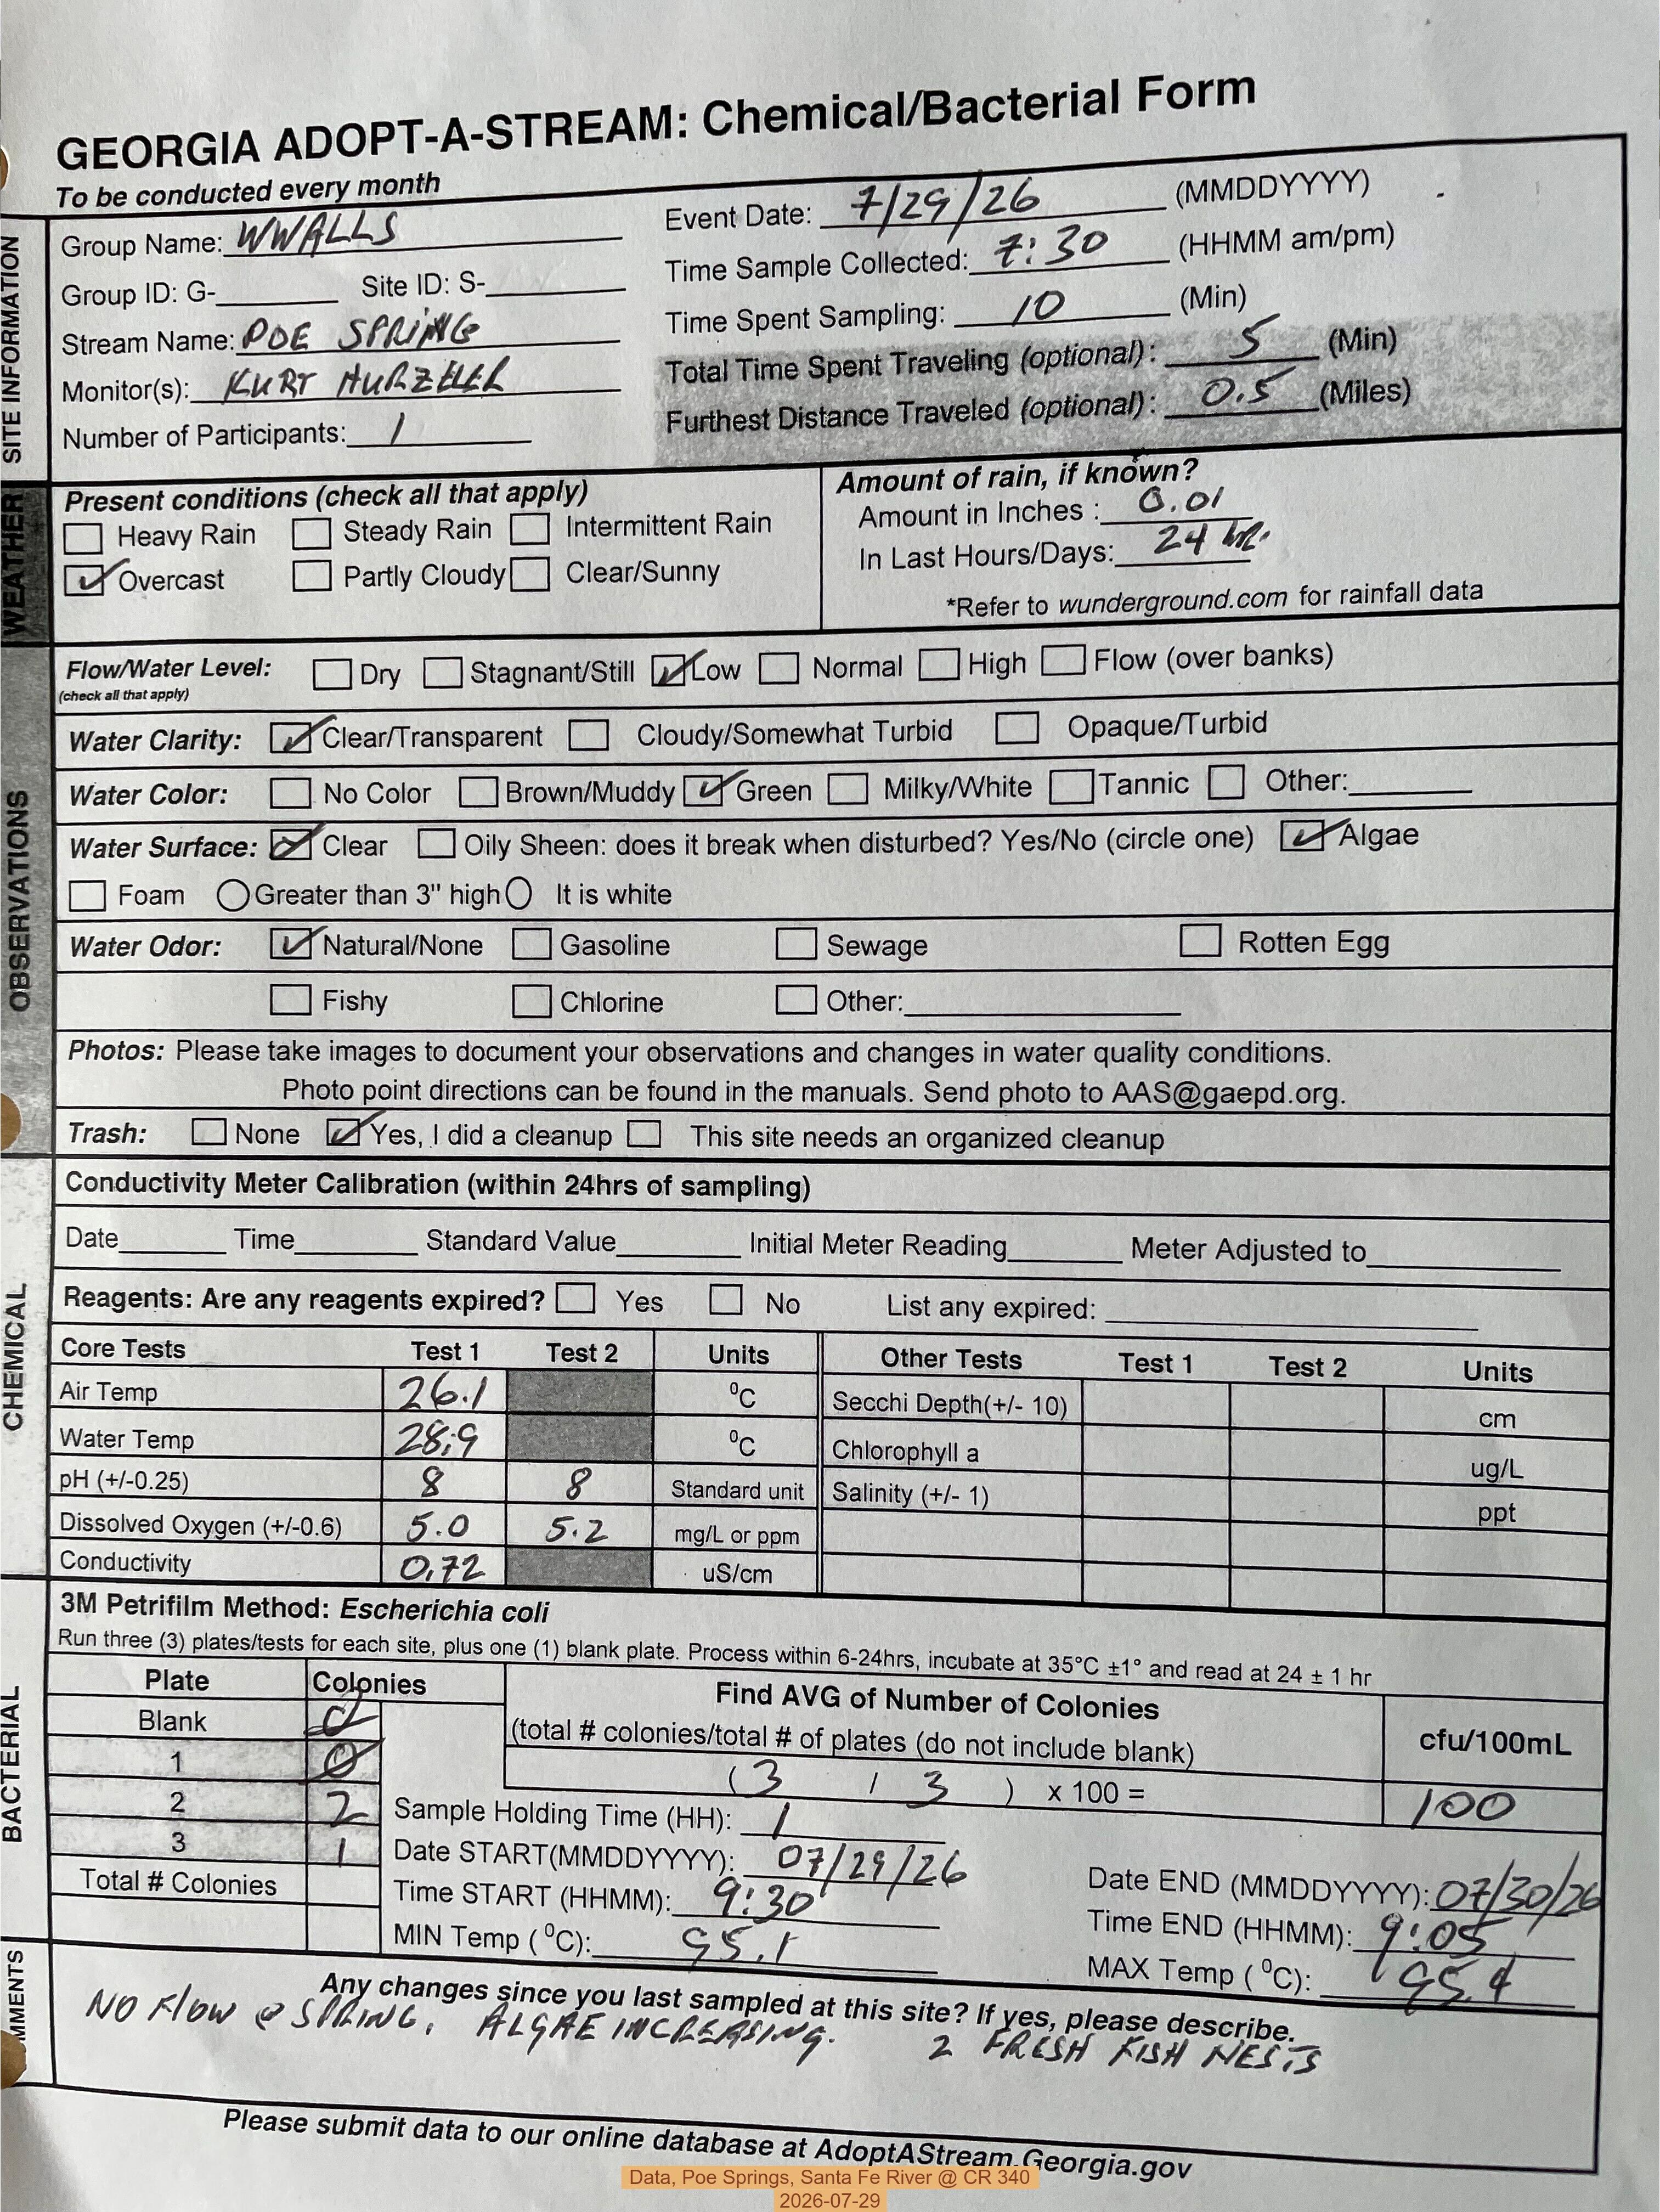 GEORGIA ADOPT-A-STREAM: Chemical/Bacterial Form
To be conducted every month
SITE INFORMATION
Group Name: WWALLS
Group ID: G-________ Site ID: S-________
Stream Name: POE SPRING
Monitor(s): KURT HURZELER
Number of Participants: 1
Event Date: 7/29/26 (MMDDYYYY)
Time Sample Collected: 7:30 (HHMM am/pm)
Time Spent Sampling: 10 (Min)
Total Time Spent Traveling (optional): 5 (Min)
Furthest Distance Traveled (optional): 0.5 (Miles)
WEATHER
Present conditions (check all that apply)
Heavy Rain Steady Rain Intermittent Rain
✓ Overcast Partly Cloudy Clear/Sunny
Amount of rain, if known?
Amount in Inches : 0.01
In Last Hours/Days: 24 hr.
*Refer to wunderground.com for rainfall data
OBSERVATIONS
Flow/Water Level: Dry Stagnant/Still ✓ Low Normal High Flow (over banks)
(check all that apply)
Water Clarity: ✓ Clear/Transparent Cloudy/Somewhat Turbid Opaque/Turbid
Water Color: No Color Brown/Muddy ✓ Green Milky/White Tannic Other:________
Water Surface: ✓ Clear Oily Sheen: does it break when disturbed? Yes/No (circle one) ✓ Algae
Foam Greater than 3" high It is white
Water Odor: ✓ Natural/None Gasoline Sewage Rotten Egg
Fishy Chlorine Other:________
Photos: Please take images to document your observations and changes in water quality conditions.
Photo point directions can be found in the manuals. Send photo to AAS@gaepd.org.
Trash: None ✓ Yes, I did a cleanup This site needs an organized cleanup
CHEMICAL
Conductivity Meter Calibration (within 24hrs of sampling)
Date________ Time________ Standard Value________ Initial Meter Reading________ Meter Adjusted to________
Reagents: Are any reagents expired? Yes No List any expired: ________
Core Tests Test 1 Test 2 Units Other Tests Test 1 Test 2 Units
Air Temp 26.1 ⁰C Secchi Depth(+/- 10) cm
Water Temp 28.9 ⁰C Chlorophyll a ug/L
pH (+/-0.25) 8 8 Standard unit Salinity (+/- 1) ppt
Dissolved Oxygen (+/-0.6) 5.0 5.2 mg/L or ppm
Conductivity 0.72 uS/cm
BACTERIAL
3M Petrifilm Method: Escherichia coli
Run three (3) plates/tests for each site, plus one (1) blank plate. Process within 6-24hrs, incubate at 35°C ±1° and read at 24 ± 1 hr
Plate Colonies
Blank 0
1 0
2 2
3 1
Total # Colonies
Find AVG of Number of Colonies
(total # colonies/total # of plates (do not include blank)
( 3 / 3 ) x 100 =
cfu/100mL
100
Sample Holding Time (HH): 1
Date START(MMDDYYYY): 07/29/26
Time START (HHMM): 9:30
MIN Temp (⁰C): 95.1
Date END (MMDDYYYY): 07/30/26
Time END (HHMM): 9:05
MAX Temp (⁰C): 95.4
MMENTS
Any changes since you last sampled at this site? If yes, please describe.
NO FLOW @ SPRING, ALGAE INCREASING. 2 FRESH FISH NESTS
Please submit data to our online database at AdoptAStream.Georgia.gov
Data, Poe Springs, Santa Fe River @ CR 340
2026-07-29